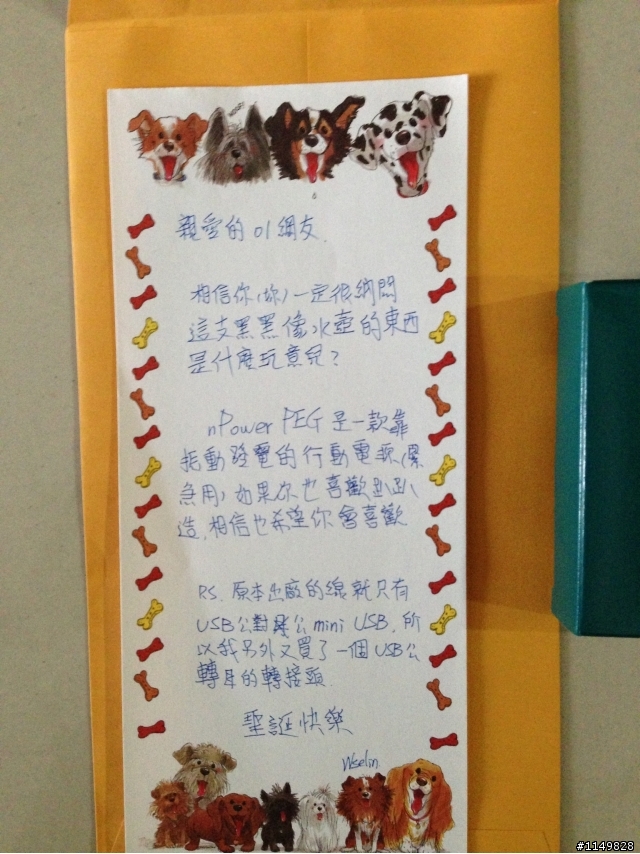 親愛的 01網友.
相信你(妳)一定很納悶
這支黑黑像水壺的東西
是什麼玩意兒?
nPower PEG 是一款靠
振動發電的行動電源(緊
急用),如果你也喜歡趴趴
造,相信也希望你會喜歡
P.S. 原本出廠的線就只有
USB公對公mini USB, 所
以我另外又買了一個USB公
轉母的轉接頭
聖誕快樂
Wselin
#1149828